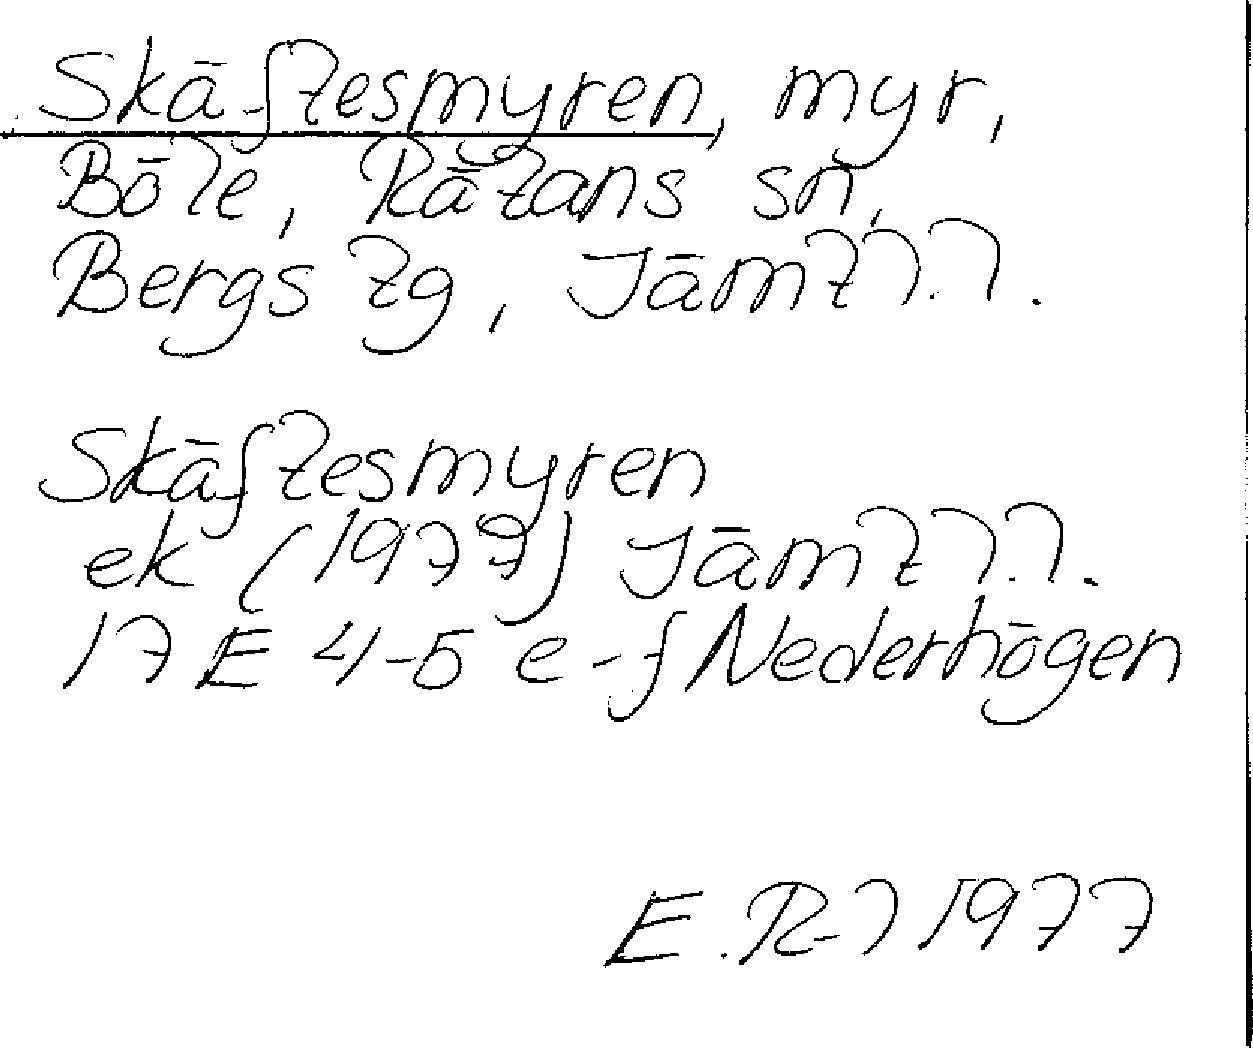 Skäftesmyren, myr,
Böle, Rätans sn,
Bergs tg, Jämtl.l.
Skäftesmyren
ek (1977) Jämtl.l.
17 E 4-5 e-f Nederhögen
E.R-l 1977